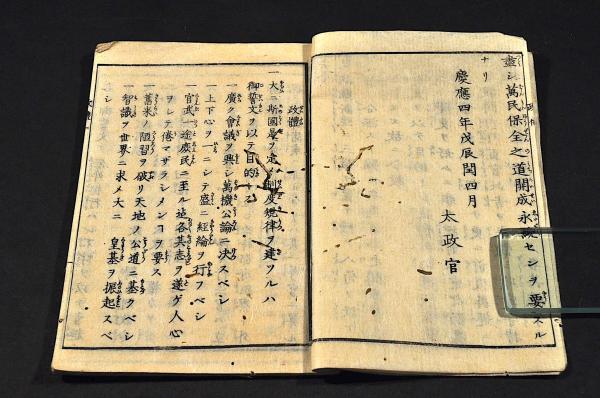 盡シ萬民保全之道開成永續セシヲ要スル
ナリ
慶應四年戊辰閏四月
太政官
政體
一大ニ斯國是ヲ定メ制度規律ヲ建ツルハ
御誓文ヲ以テ目的トス
一廣ク會議ヲ興シ萬機公論ニ決スベシ
一上下心ヲ一ニシテ盛ニ經綸ヲ行フベシ
一官武一途庶民ニ至ル迄各其志ヲ遂ゲ人心
ヲシテ倦マザラシメンコヲ要ス
一舊來ノ陋習ヲ破リ天地ノ公道ニ基クベシ
一智識ヲ世界ニ求メ大ニ　皇基ヲ振起スベ
シ